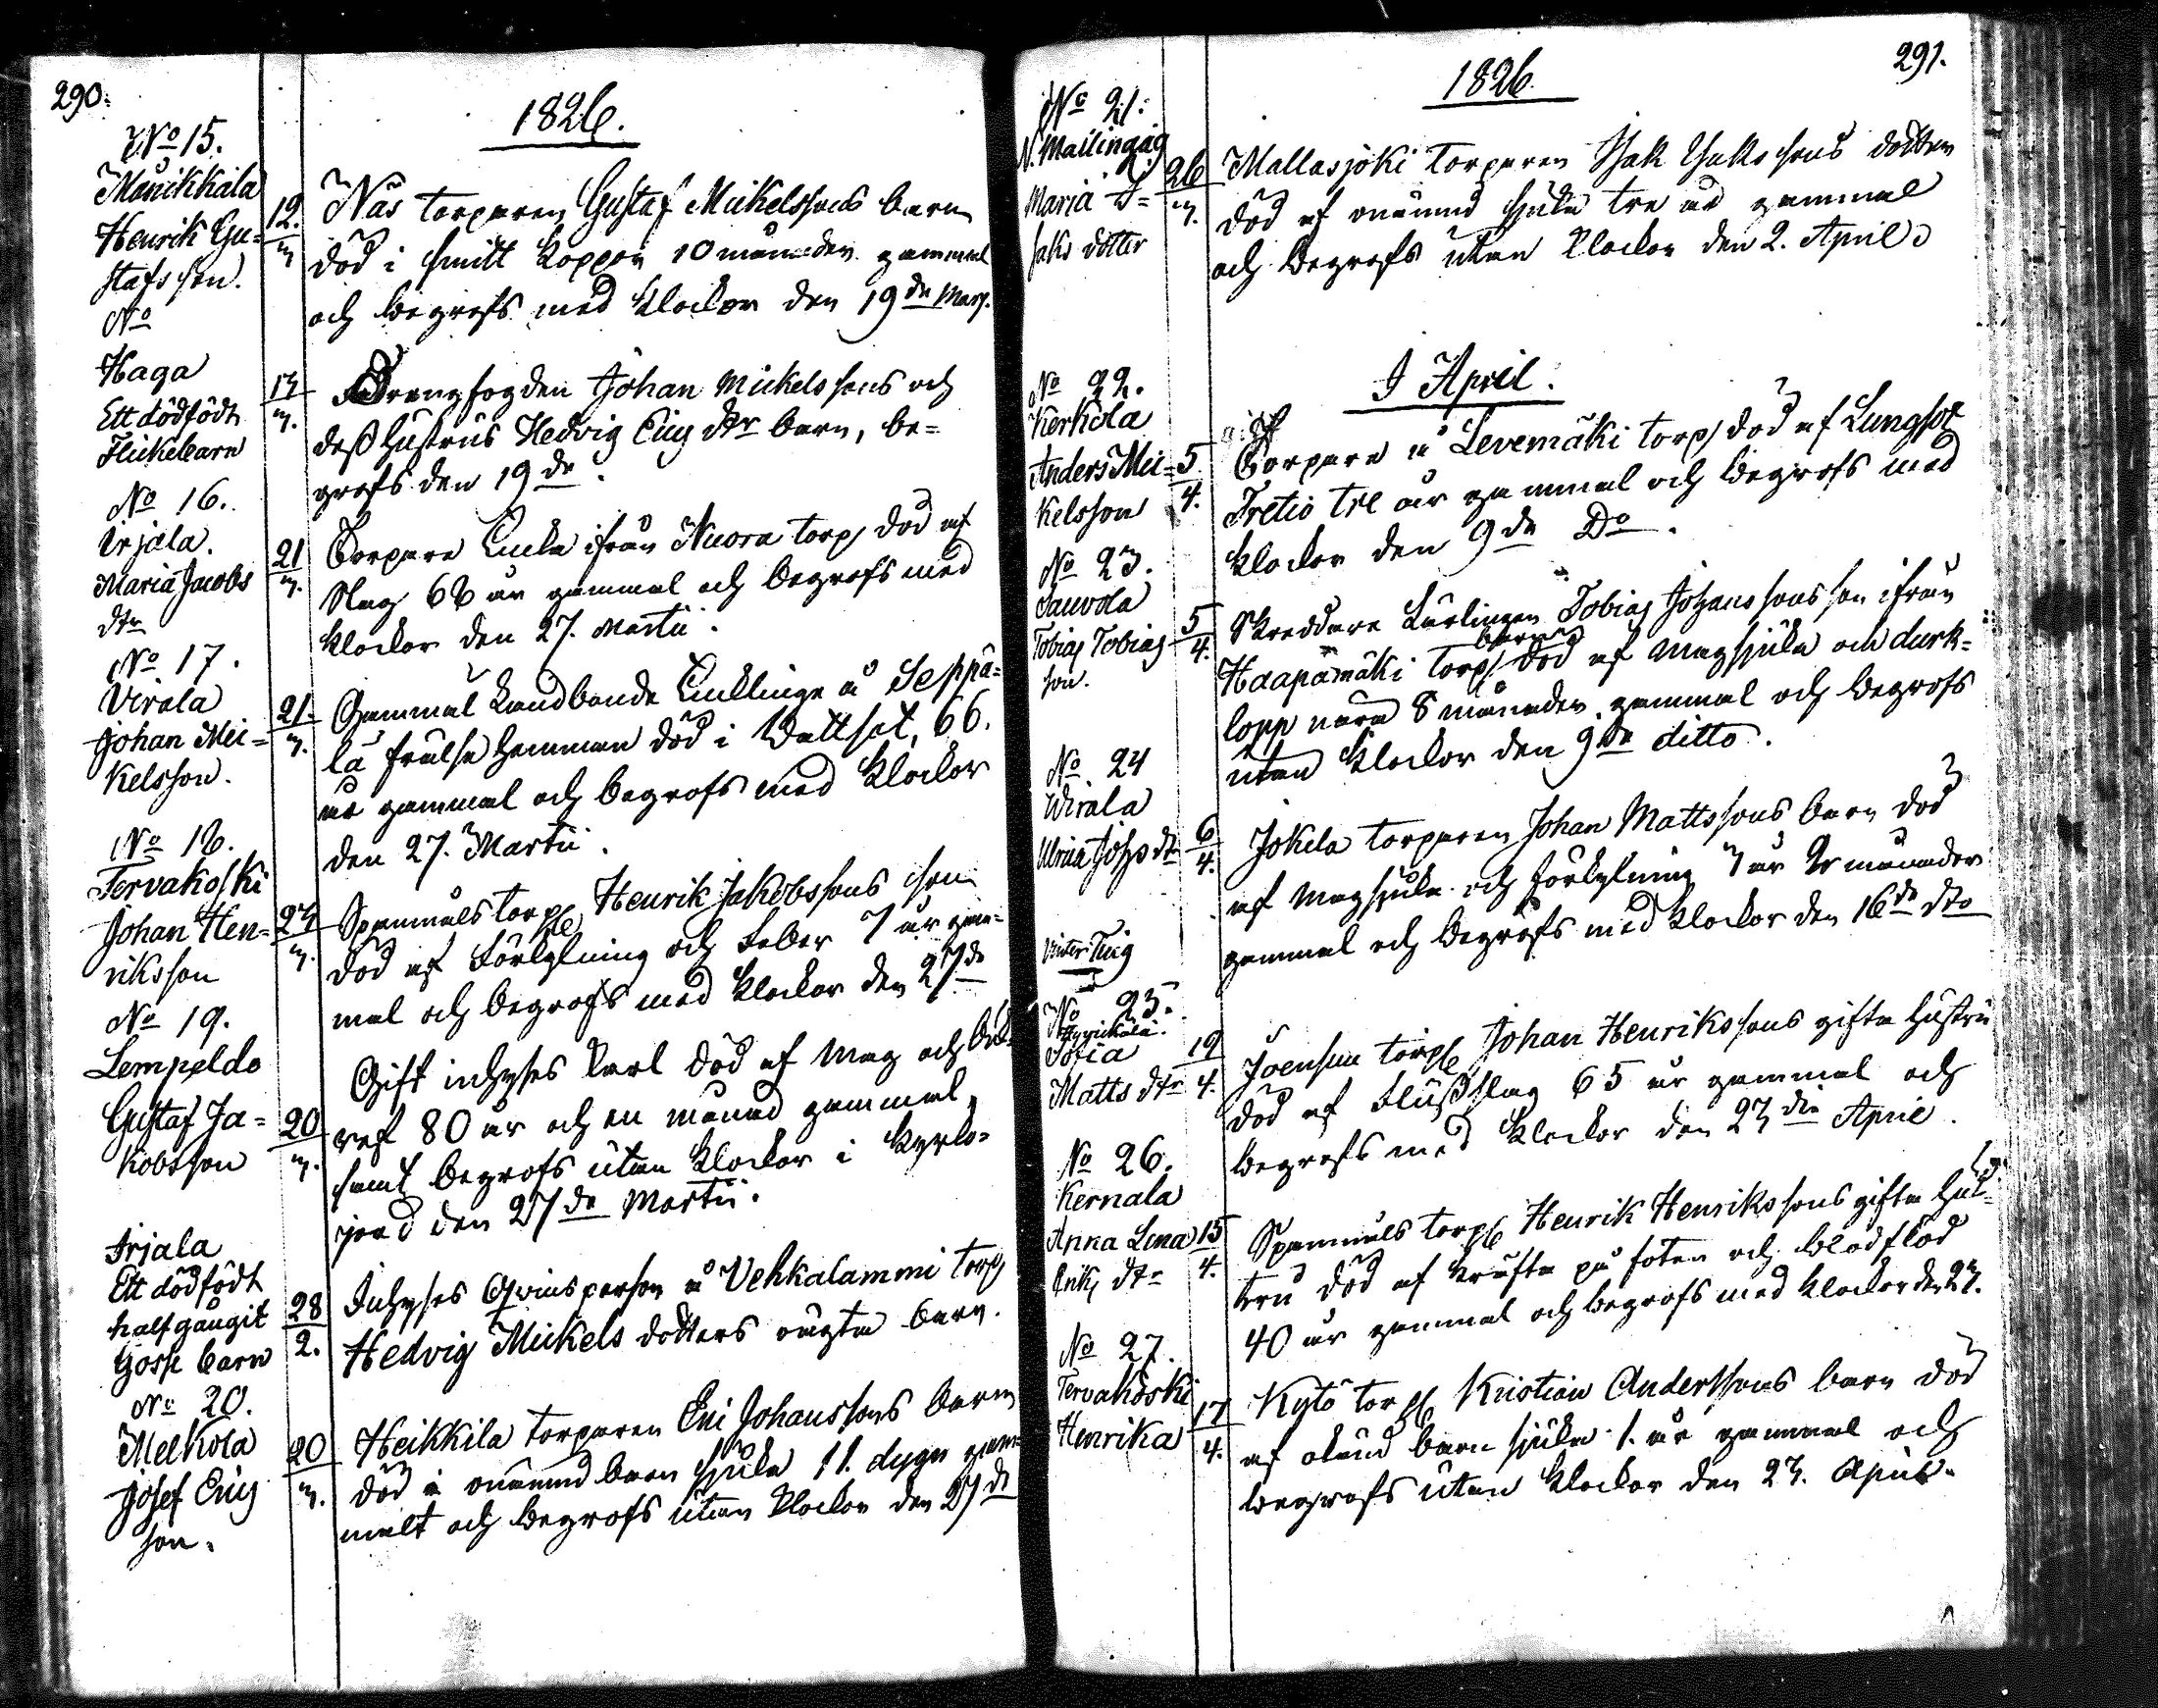 290.
1826.
No 15.
Monikkala
Henrik Gu=
stafs son.
12.
3
Näs torparen Gustaf Mickelssons barn
död i smitt koppor 10 månader gammal
och begrofs med klockor den 19de Mars.
No
Haga
Ett dödfödt
Flickebarn
13
3.
Drengfogden Johan Mickelssons och
dess hustrus Hedvig Erics dtr barn, be=
grofs den 19de.
No 16.
Irjala.
Maria Jacobs
dtr
21
3.
Torpare Enka ifrån Nuora torp död af
Slag 68 år gammal och begrofs med
klockor den 27. Martii.
No 17.
Virala
Johan Mic=
kelsson.
21.
3.
Gammal Landbonde Enklinge å Seppä=
lä frälse hemman död i Vattsot, 66.
år gammal och begrofs med klockor
den 27. Martii.
No 18.
Tervakoski
Johan Hen=
riksson
23
3.
Spannuls torp Henrik Jakobssons son
död af Förkylning och Feber 7 år gam=
mal och begrofs med klockor den 27de
No 19.
Lempeldo
Gustaf Ja=
kobsson
20
3.
Gift inhyses karl död af Mag och
ref 80 år och en månad gammal,
samt begrofs utan klockor i kyrko=
jord den 27de Martii.
Irjala
Ett dödfödt
halfgångit
Gosse barn
28
2.
Inhyses qvinsperson å Vehkalammi torp
Hedvig Mickels dotters oägta barn.
No 20.
Melkola
Josef Erics
son.
20
3.
Heikkila torparen Eric Johanssons barn
död i onämnd barn sjuka 11. dygn gam=
malt och begrofs utan klockor den 27de
291.
1826.
No 21.
N. Mallinga
Maria I=
saks dotter
26
3.
Mallasjoki torparen Isak Isakssons dotter
död af onämnd sjuka tre år gammal
och begrofs utan klockor den 2. April.
I April.
No 22.
Kerkola
Anders Mic=
kelsson
5
4.
Torpare å Levemäki torp död af Lungsot
Tretio tre år gammal och begrofs med
klockor den 9de Do.
No 23.
Sauvola
Tobias Tobias
son.
5
4.
Skreddare Lärlingen Tobias Johanssons son ifrån
Haapamäki torp barn död af magsjuka och durk=
lopp nära 8 månader gammal och begrofs
utan klockor den 9de ditto.
No 24
Wirala
Ulrica Johs dtr
6
4.
Jokela torparen Johan Mattssons barn död
af magsjuka och förkylning 7 år 2 månader
gammal och begrofs med klockor den 16de dto
Vinter Ting
No 25.
Sofia
Matts dtr
19
4.
Joensuu torp Johan Henrikssons gifta hustru
död af Flussslag 65 år gammal och
begrofs med klockor den 23die April.
No 26.
Kernala
Anna Lena
Eriks dtr
15
4.
Spannuls torp Henrik Henrikssons gifta hus=
tru död af kräfta på foten och blodflod
40 år gammal och begrofs med klockor den 23.
No 27.
Tervakoski
Henrika
17
4.
Kytö torp Kristian Anderssons barn död
af okänd barn sjuka 1. år gammal och
begrofs utan klockor den 23. April.